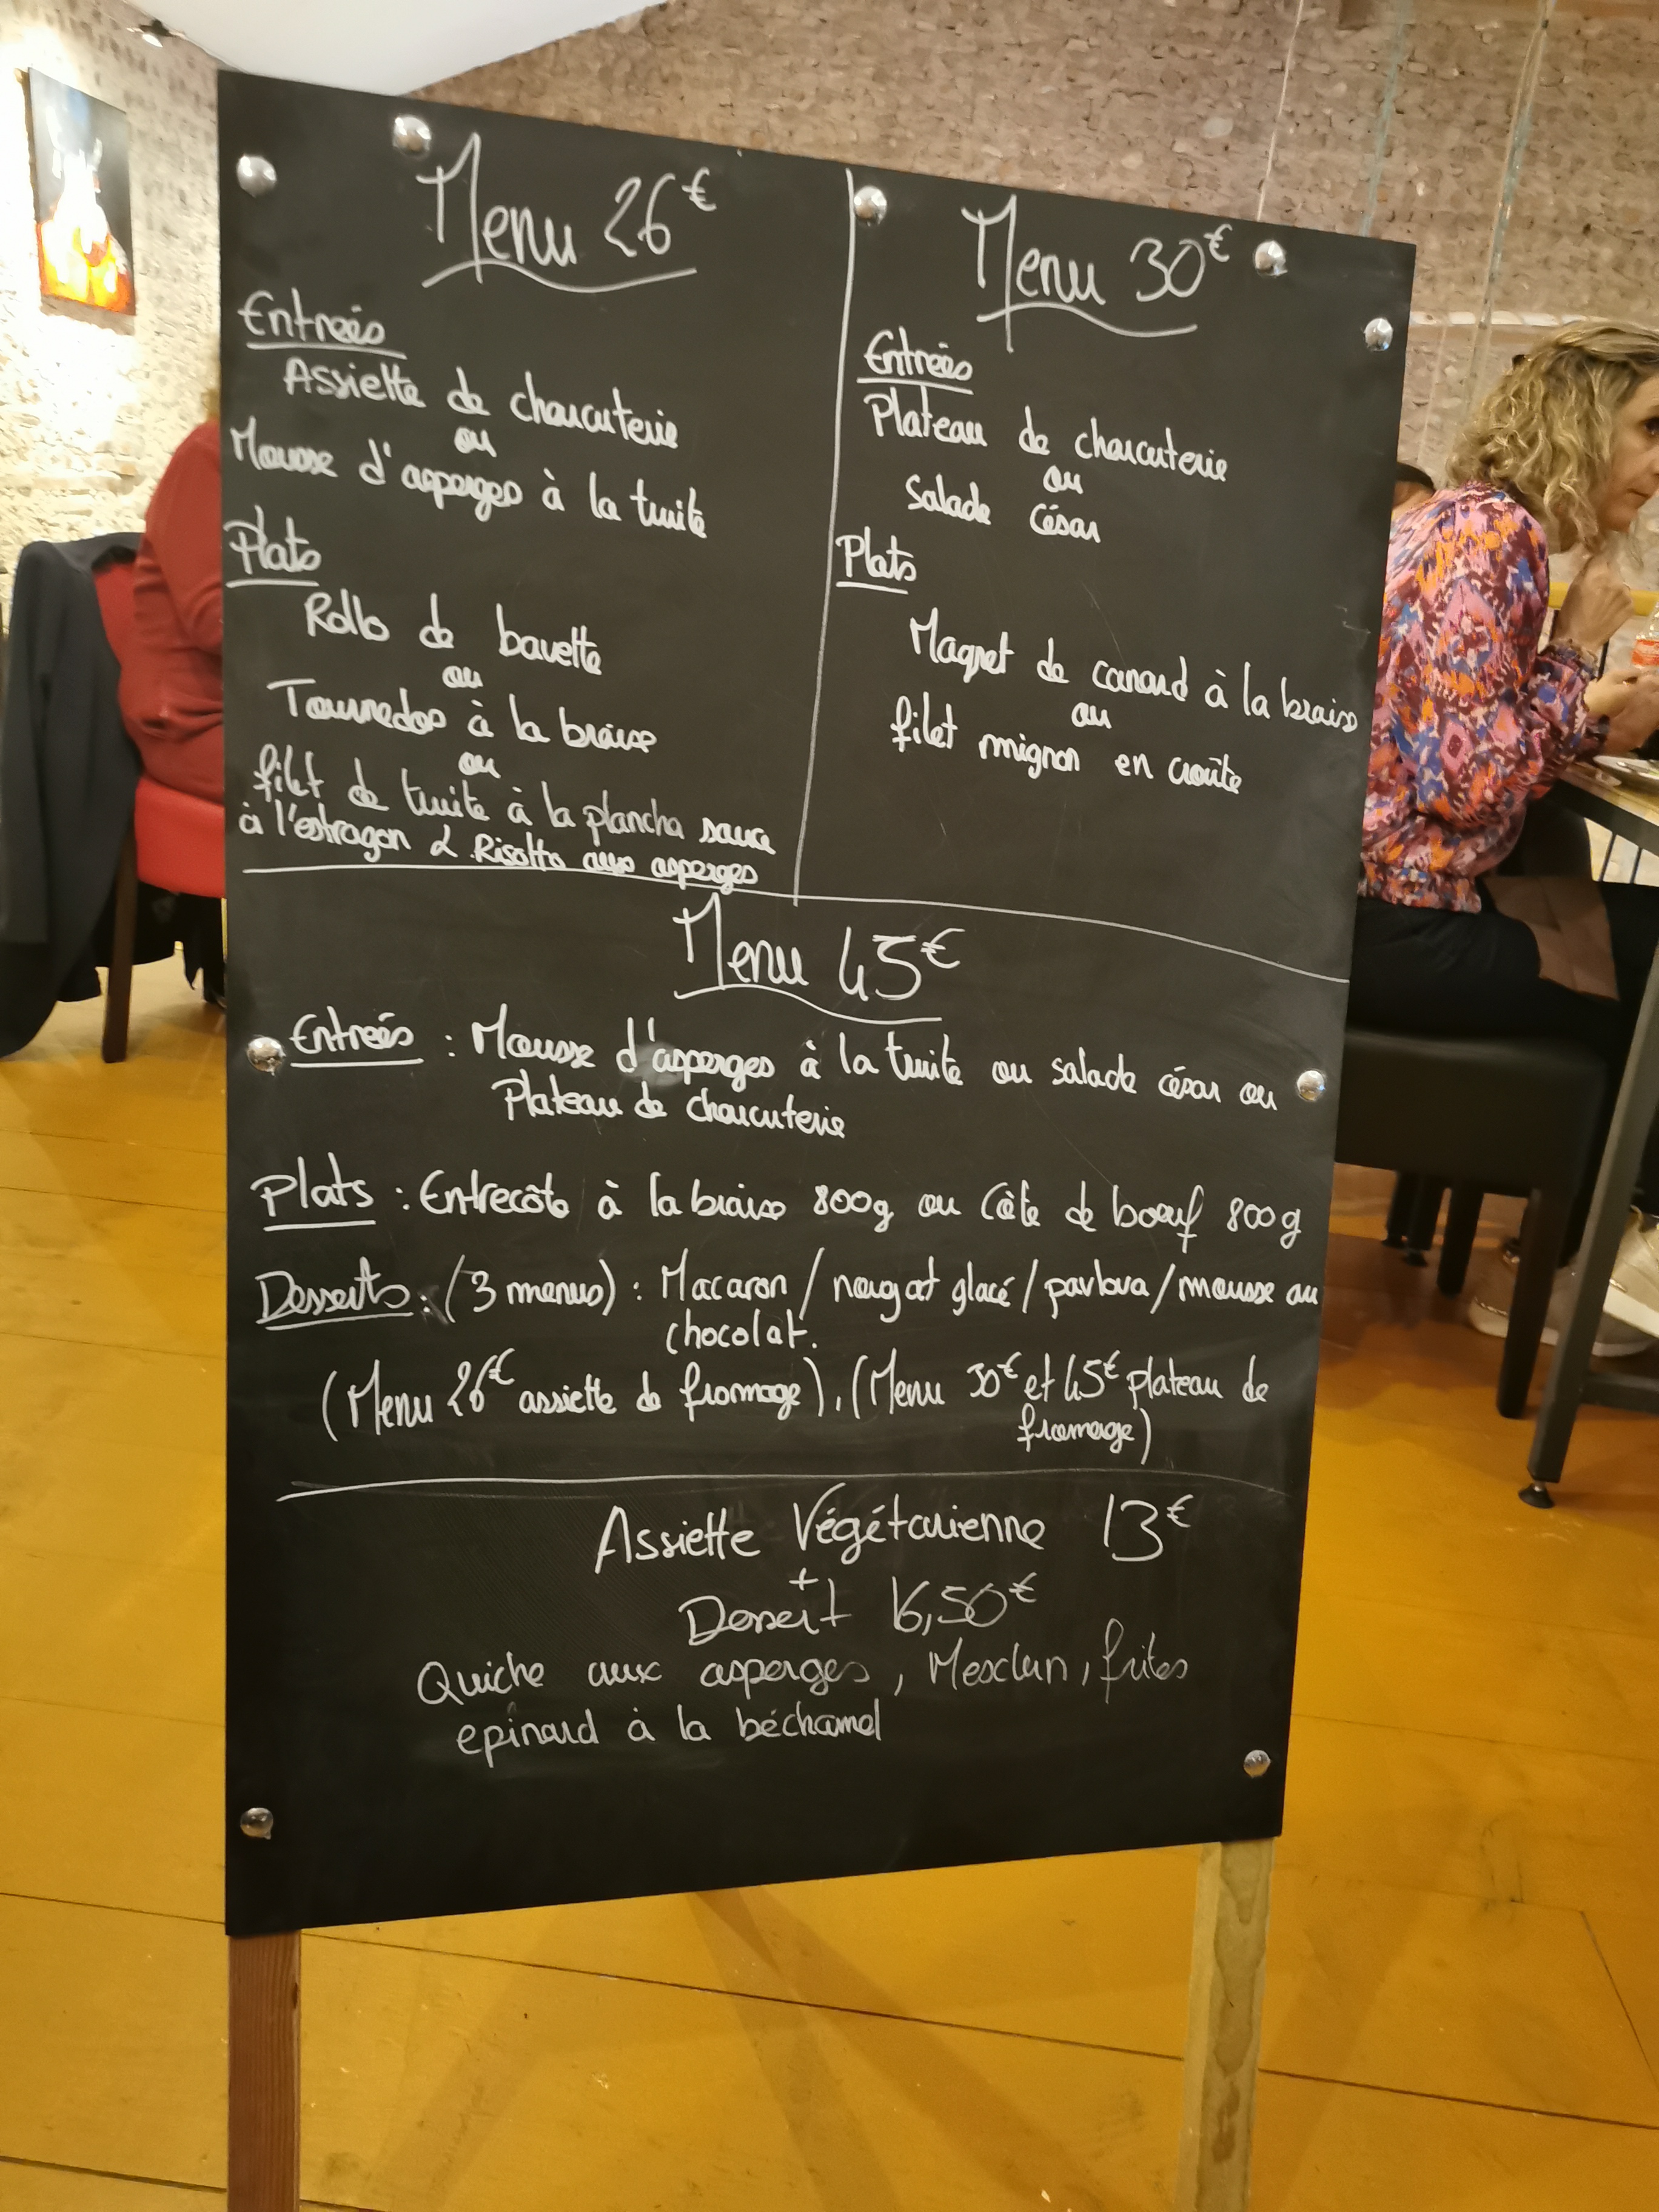 Menu 26€
Entrées
Assiette de charcuterie
ou
Mousse d'asperges à la truite
Plats
Rollo de bavette
ou
Tournedos à la braise
ou
filet de truite à la plancha sauce
à l'estragon & Risotto aux asperges
Menu 30€
Entrées
Plateau de charcuterie
ou
Salade César
Plats
Magret de canard à la braise
ou
filet mignon en croûte
Menu 45€
Entrées : Mousse d'asperges à la truite ou salade césar ou
Plateau de charcuterie
Plats : Entrecôte à la braise 800g ou Côte de boeuf 800g
Desserts : (3 menus) : Macaron / nougat glacé / pavlova / mousse au
chocolat.
(Menu 26€ assiette de fromage), (Menu 30€ et 45€ plateau de
fromage)
Assiette Végétarienne 13€
+
Dessert 16,50€
Quiche aux asperges, Mesclun, frites
epinard à la béchamel